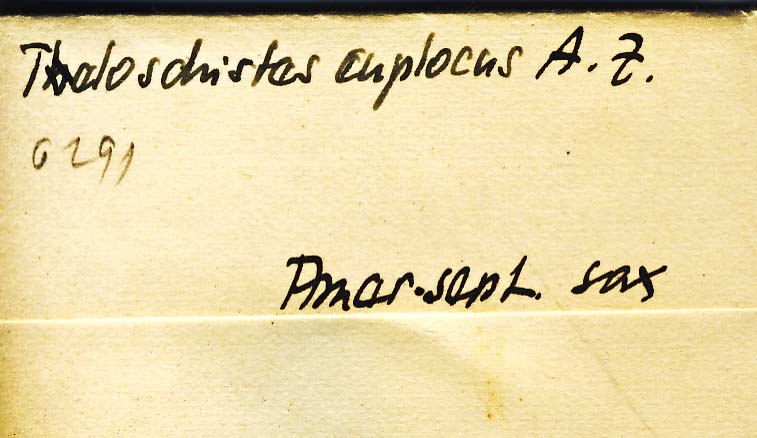 Theloschistes euplocus A. Z.
6291
Amer. sept. sax